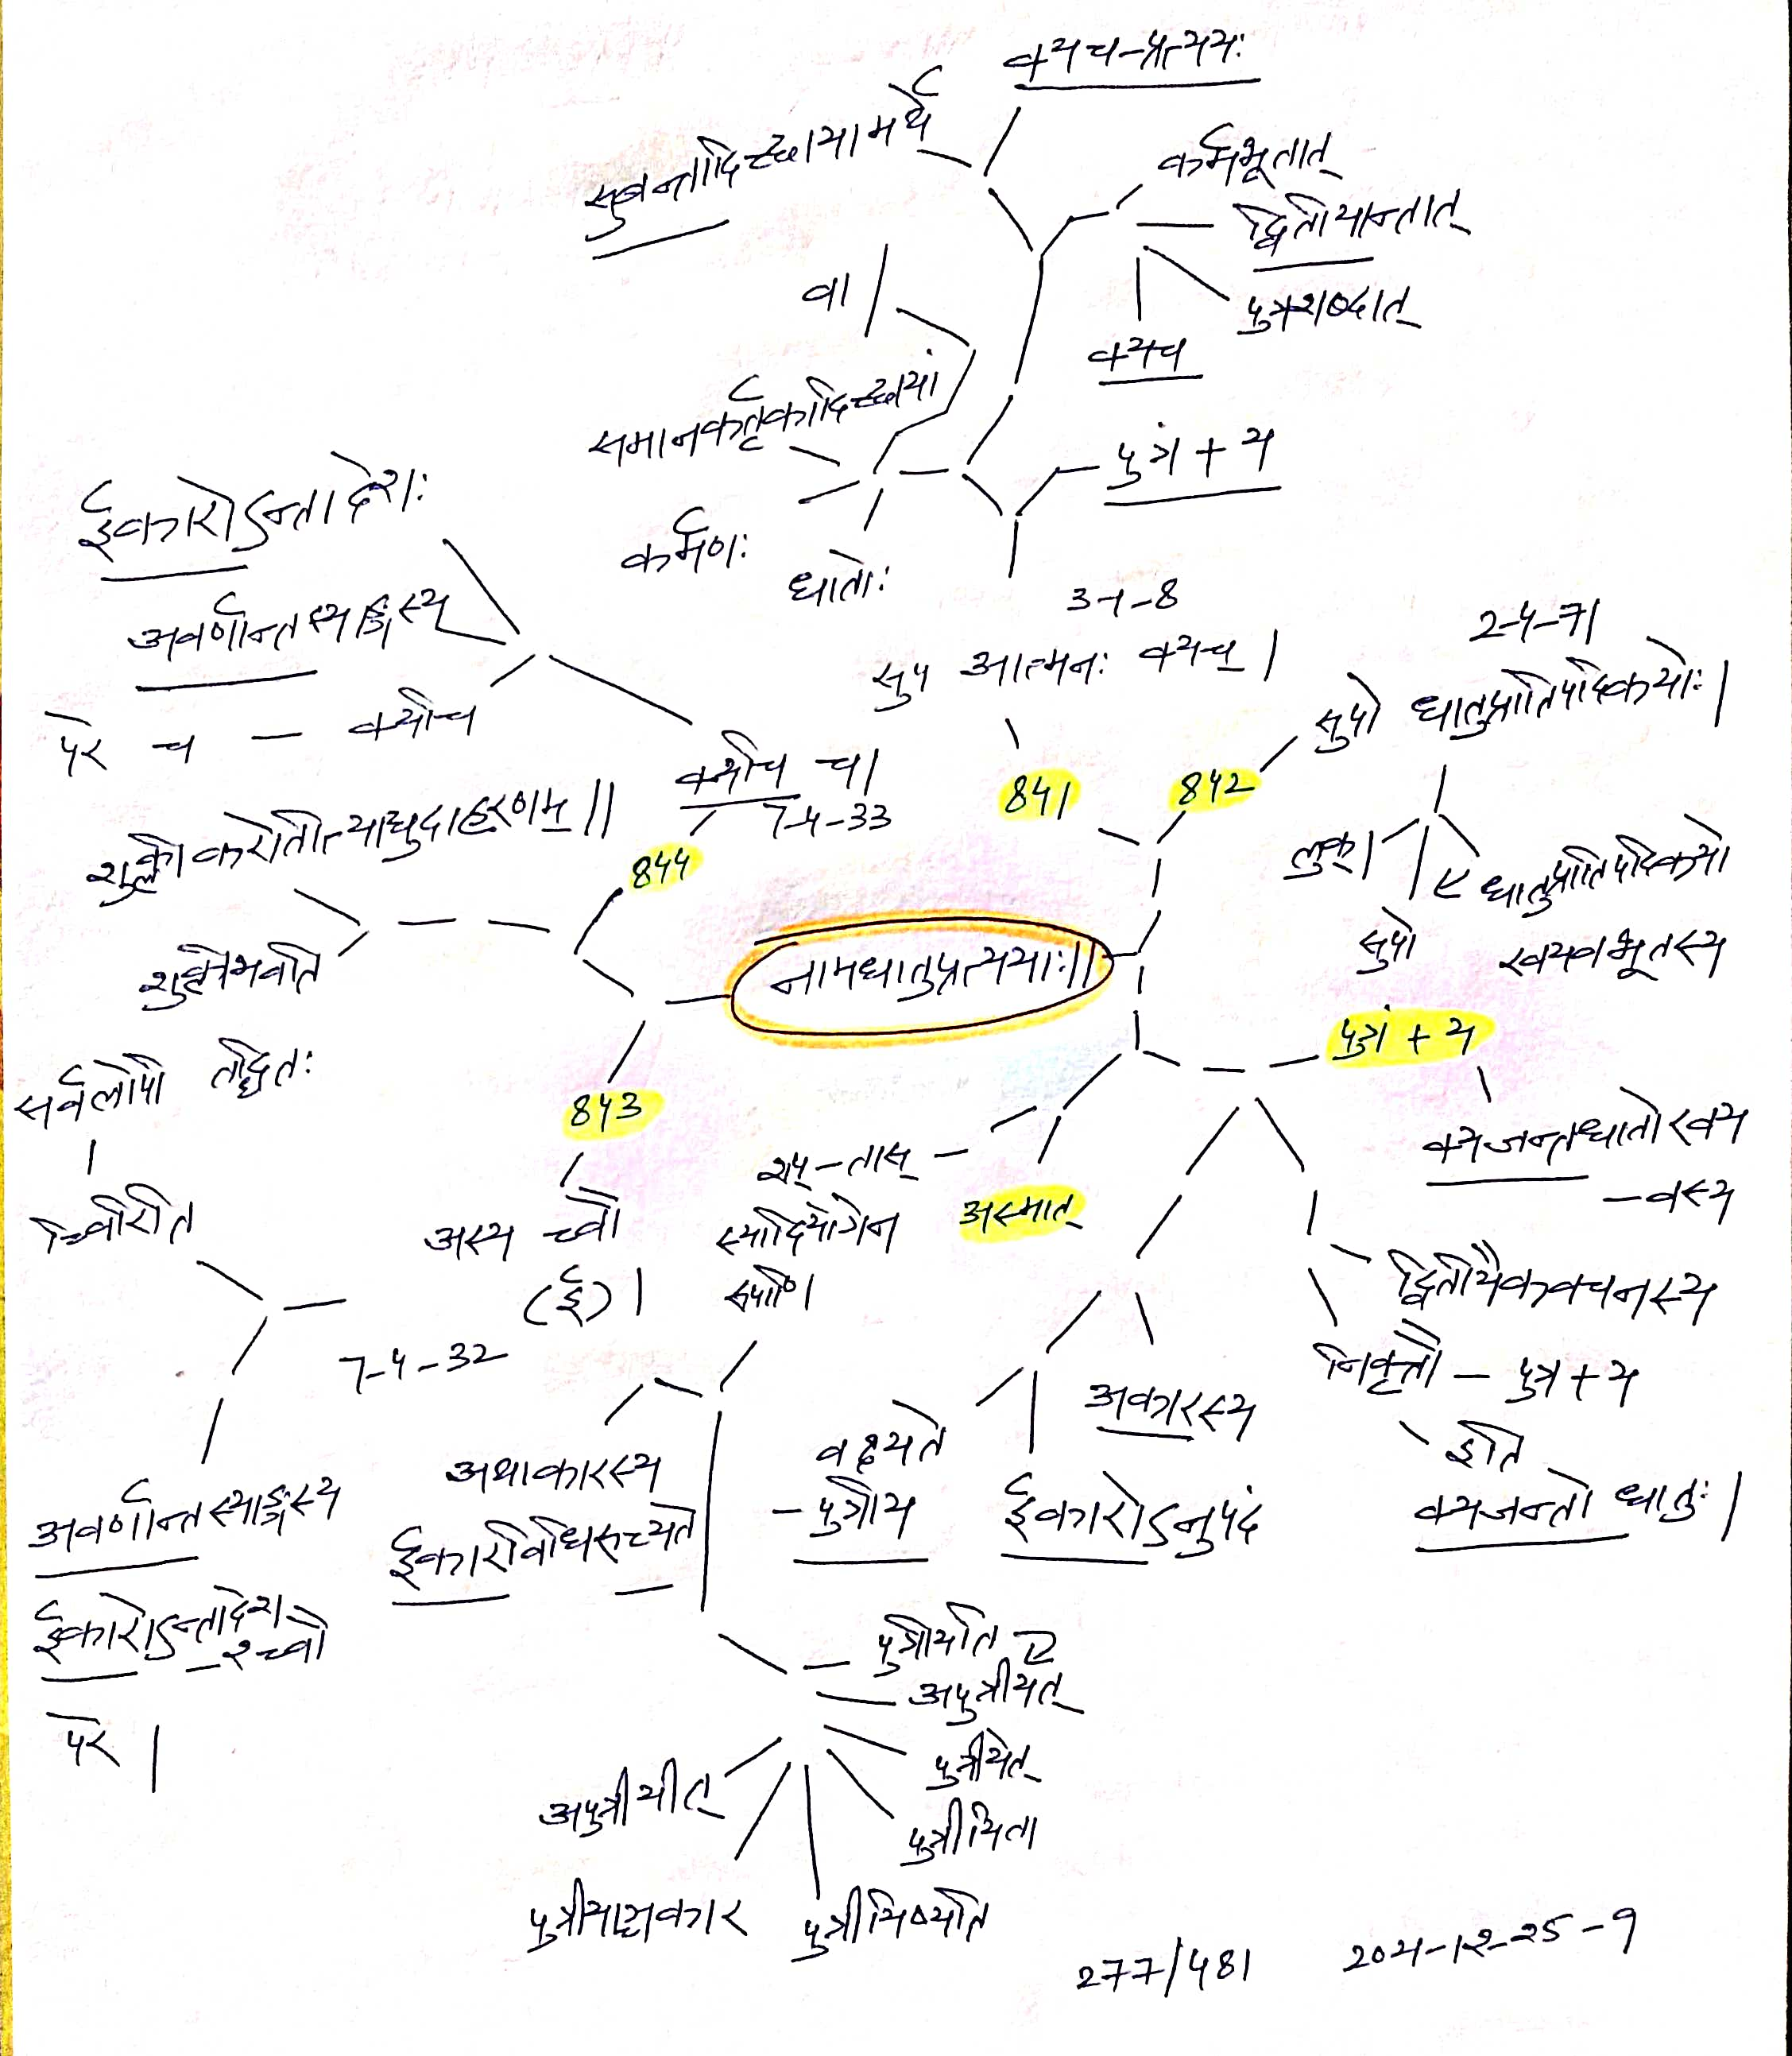 क्यच-प्रत्ययः
सुबन्तादिच्छायामर्थे
कर्मभूतात्
द्वितीयान्तात्
पुत्रशब्दात्
क्यच
वा
समानकर्तृकादिच्छायां
कर्मणः
धातोः
पुत्रं + य
3-1-8
सुप आत्मनः क्यच् |
841
2-4-71
सुपो धातुप्रातिपदिकयोः |
842
लुक् |
सुपो
धातुप्रातिपदिकयो
रवयवभूतस्य
ईकारोऽन्तादेशः
अवर्णान्तस्याङ्गस्य
परे च — क्यचि
क्यचि च |
7-4-33
844
शुक्लीकरोतीत्याद्युदाहरणम् ||
शुक्लीभवति
नामधातुप्रत्ययाः ||
843
अस्य च्वौ
(ई) |
7-4-32
सर्वलोपी तद्धितः
च्विरिति
अवर्णान्तस्याङ्गस्य
ईकारोऽन्तादेश
-श्च्वौ
परे |
पुत्रं + य
क्यजन्तधातोरवय
-वस्य
द्वितीयैकवचनस्य
निवृत्तौ - पुत्र + य
इति
क्यजन्तो धातुः |
अकारस्य
ईकारोऽनुपदं
वक्ष्यते
- पुत्रीय
अस्मात्
शप् - तास् -
स्यादियोगेन
रूपाणि |
अथाकारस्य
ईकारविधिरुच्यते
पुत्रीयति
अपुत्रीयत्
पुत्रीयेत्
पुत्रीयिता
पुत्रीयिष्यति
पुत्रीयाञ्चकार
अपुत्रीयीत्
277/481